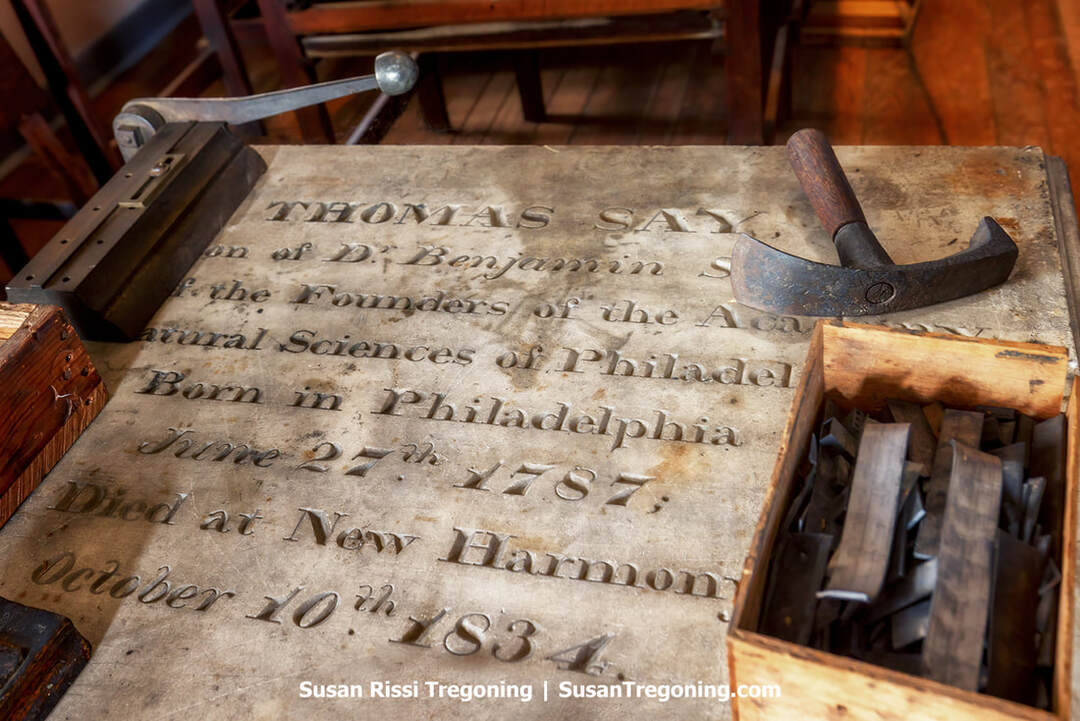 THOMAS SAY
on of Dr. Benjamin S
f the Founders of the Academy
atural Sciences of Philadel
Born in Philadelphia
June 27th 1787.
Died at New Harmony
October 10th 1834.
Susan Rissi Tregoning | SusanTregoning.com